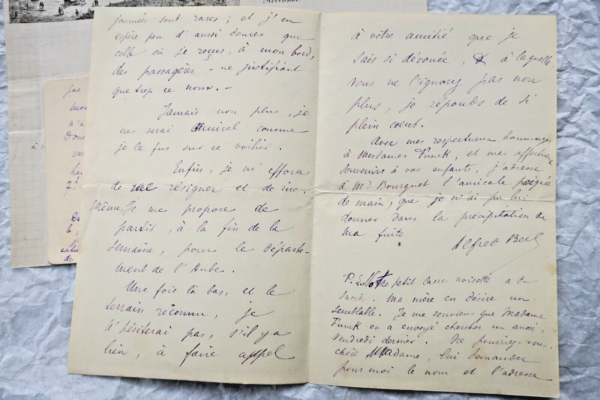 journées sont rares ; et j'en
espère peu d'aussi douces que
celle où je reçus, à mon bord,
des passagères - ne justifiant
que trop ce nom. -
Jamais non plus, je
ne serai comme
je le fus sur ce voilier.
Enfin, je m'efforce
de me résigner et de rire.
Même je me propose de
partir, à la fin de la
semaine, pour le départe-
ment de l'Aube.
Une fois là bas, et le
terrain reconnu, je
n'hésiterai pas, s'il y a
lieu, à faire appel
à votre amitié que je
sais si dévouée, & à laquelle
vous ne l'ignorez pas non
plus, je réponds de si
plein coeur.
Avec mes respectueux hommages
à Madame Funck, et mes affectueux
souvenirs à vos enfants, j'adresse
à Mr Bourguet l'amicale poignée
de main, que je n'ai pu lui
donner dans la précipitation de
ma fuite
Alfred
P.S. Notre petit casse noisette a du
succès. Ma mère en désire un
semblable. Je me souviens que Madame
Funck en a envoyé chercher un aussi,
vendredi dernier. Ne pourriez-vous,
chère Madame, lui demander
pour moi le nom et l'adresse